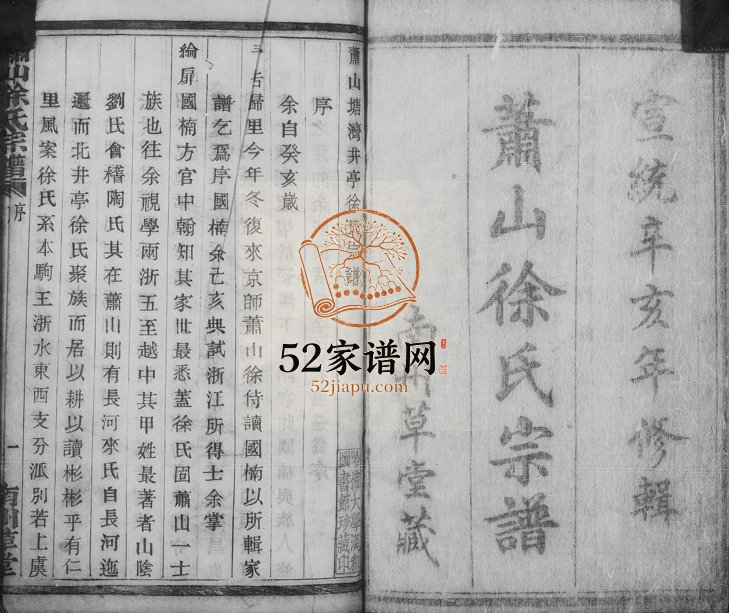 宣統辛亥年修輯
蕭山徐氏宗譜
草堂藏
蕭山塘灣井亭徐
序
余自癸亥歲
告歸里今年冬復來京師蕭山徐侍讀國楠以所輯家
譜乞爲序國楠余乙亥典試浙江所得士余掌
綸扉國楠方官中翰知其家世最悉蓋徐氏固蕭山一士
族也往余視學兩浙五至越中其甲姓最著者山陰
劉氏會稽陶氏其在蕭山則有長河來氏自長河迤
邐而北井亭徐氏聚族而居以耕以讀彬彬乎有仁
里風案徐氏系本駒王浙水東西支分派別若上虞
山徐氏宗譜
序
一
草堂
圖書館珍藏印
52家谱网
52jiapu.com